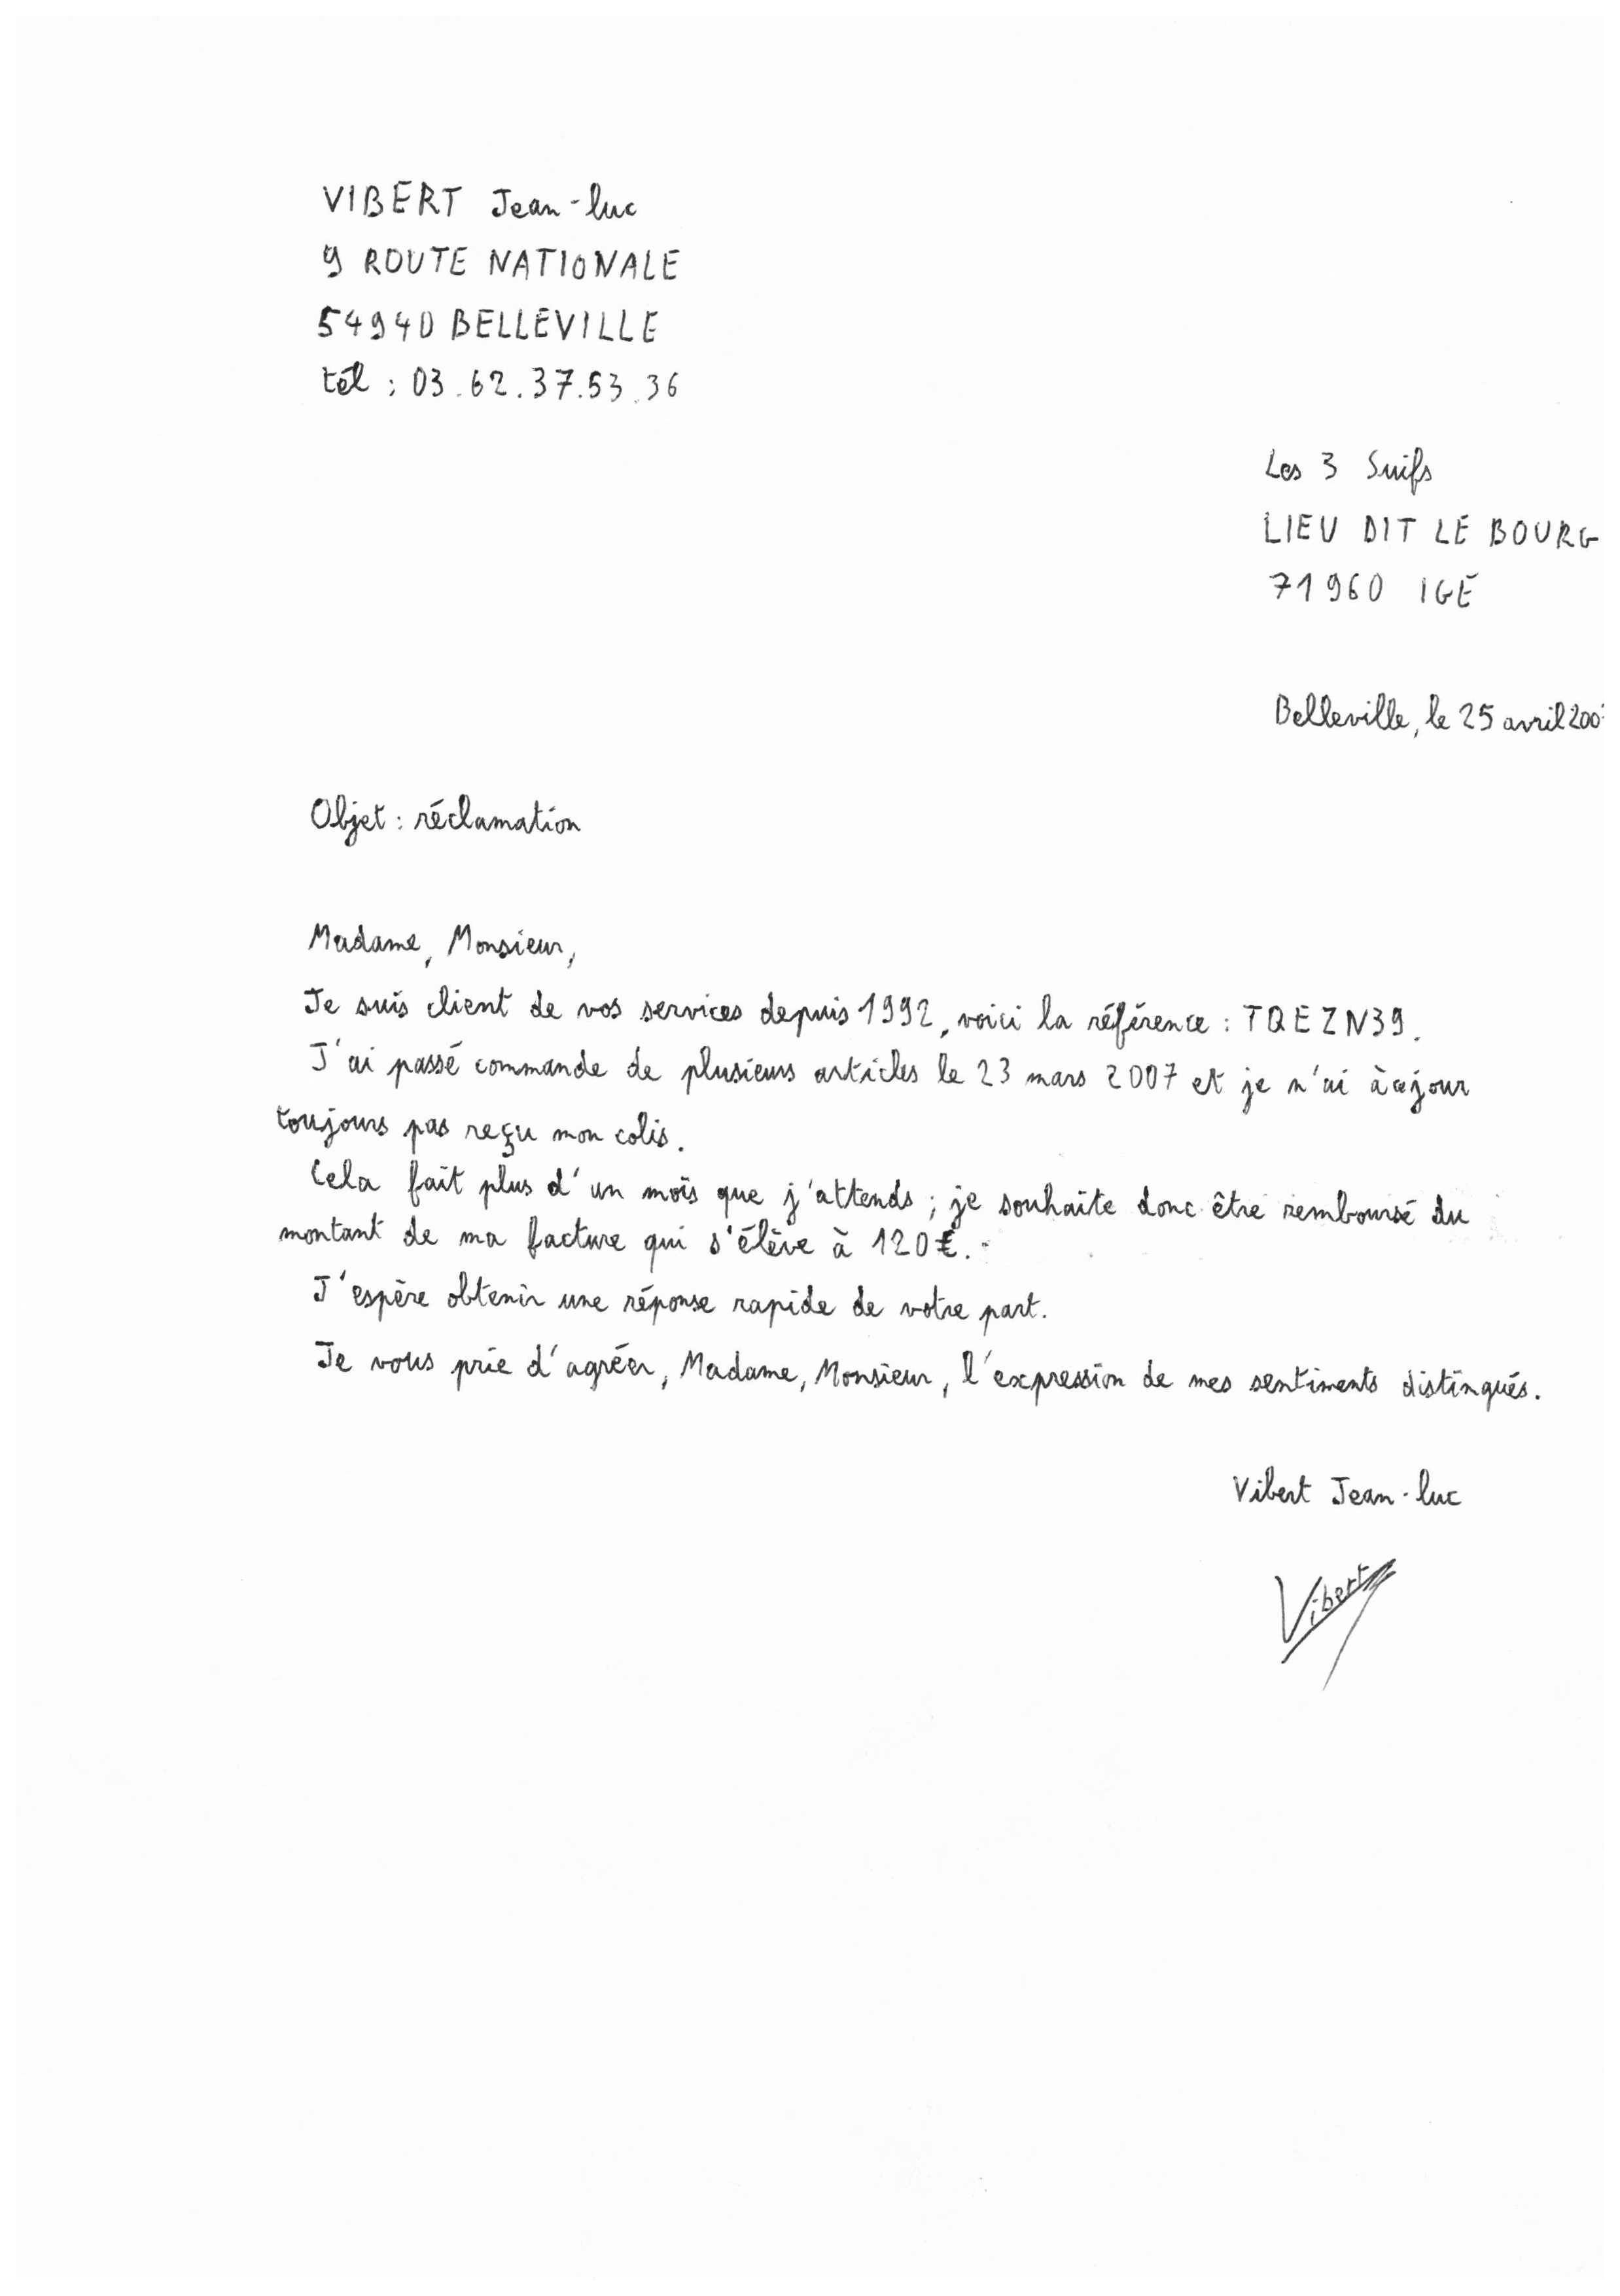 VIBERT Jean-luc
9 ROUTE NATIONALE
54940 BELLEVILLE
tél : 03.62.37.53.36
Les 3 Suifs
LIEU DIT LE BOURG
71960 IGÉ
Belleville, le 25 avril
Objet : réclamation
Madame, Monsieur,
Je suis client de vos services depuis 1992, voici la référence : TQEZN39.
J'ai passé commande de plusieurs articles le 23 mars 2007 et je n'ai à ce jour
toujours pas reçu mon colis.
Cela fait plus d'un mois que j'attends ; je souhaite donc être remboursé du
montant de ma facture qui s'élève à 120€.
J'espère obtenir une réponse rapide de votre part.
Je vous prie d'agréer, Madame, Monsieur, l'expression de mes sentiments distingués.
Vibert Jean-luc
Vibert